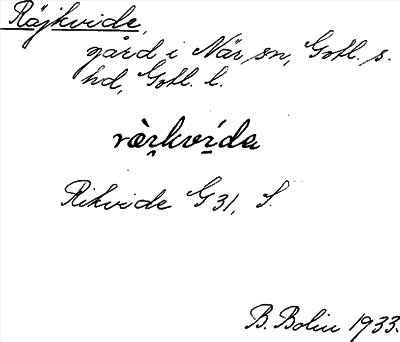 Räjkvide,
gård i När sn, Gotl. s.
hd, Gotl. l.
Rikvide G31, S.
B. Bolin 1933.